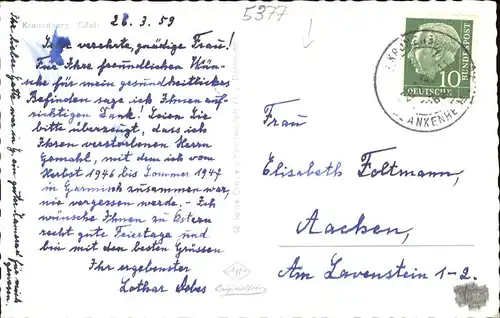 Kronenburg (Eifel)
28. 3. 59
5377
Sehr verehrte, gnädige Frau!
Für Ihre freundlichen Wün-
sche für mein gesundheitliches
Befinden sage ich Ihnen auf-
richtigen Dank! Seien Sie
bitte überzeugt, dass ich
Ihren verstorbenen Herrn
Gemahl, mit dem ich vom
Herbst 1946 bis Sommer 1947
in Garmisch zusammen war,
nie vergessen werde. - Ich
wünsche Ihnen zu Ostern
recht gute Feiertage und
bin mit den besten Grüssen
Ihr ergebenster
Lothar Debes
Ihr lieber Gatte war in G. ein guter Kamerad für mich
gewesen.
Agfa
Originalfoto
DEUTSCHE
BUNDESPOST
10
Frau
Elisabeth Foltmann,
Aachen,
Am Lavenstein 1-2.